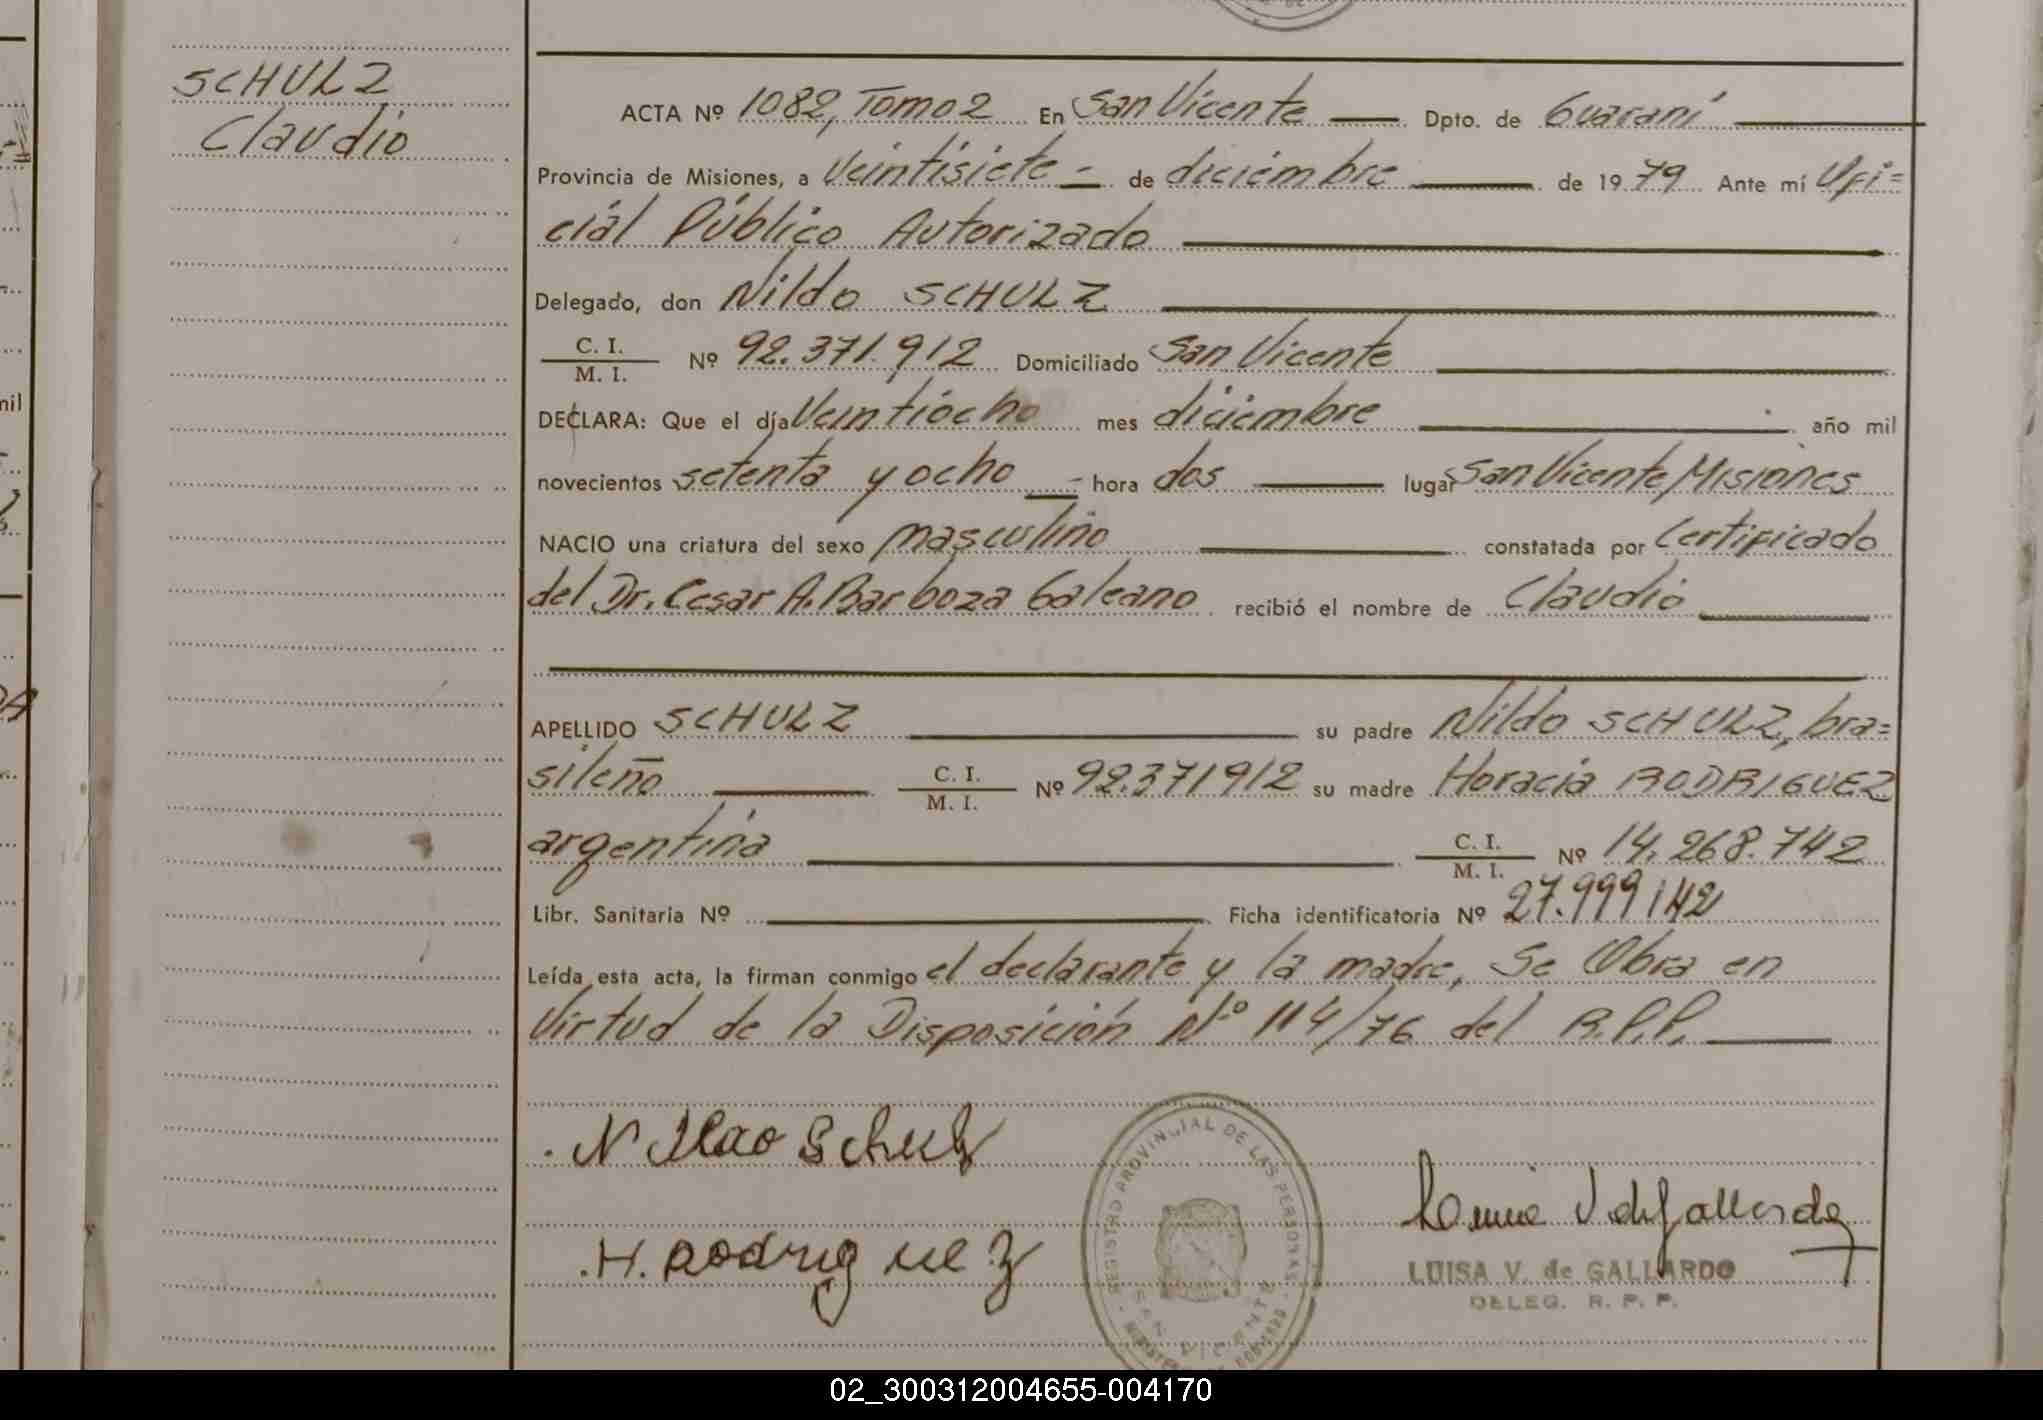 SCHULZ
Claudio
ACTA Nº 1082, Tomo 2 En San Vicente Dpto. de Guaraní
Provincia de Misiones, a Veintisiete de diciembre de 1979 Ante mí Ofi=
cial Público Autorizado
Delegado, don Nildo SCHULZ
C. I.
M. I. Nº 92.371.912 Domiciliado San Vicente
DECLARA: Que el día Veintiocho mes diciembre año mil
novecientos setenta y ocho hora dos lugar San Vicente, Misiones
NACIO una criatura del sexo masculino constatada por Certificado
del Dr. Cesar A. Barboza Galeano recibió el nombre de Claudio
APELLIDO SCHULZ su padre Nildo SCHULZ, bra=
sileño C. I. M. I. Nº 92.371912 su madre Horacia RODRIGUEZ
argentina C. I. M. I. Nº 14.268.742
Libr. Sanitaria Nº Ficha identificatoria Nº 27.999142
Leída esta acta, la firman conmigo el declarante y la madre, Se Obra en
Virtud de la Disposición Nº 114/76 del R.P.P.
Schulz
H. Rodriguez
REGISTRO PROVINCIAL DE LAS PERSONAS
SAN VICENTE
LUISA V. de GALLARDO
DELEG. R. P. P.
02_300312004655-004170